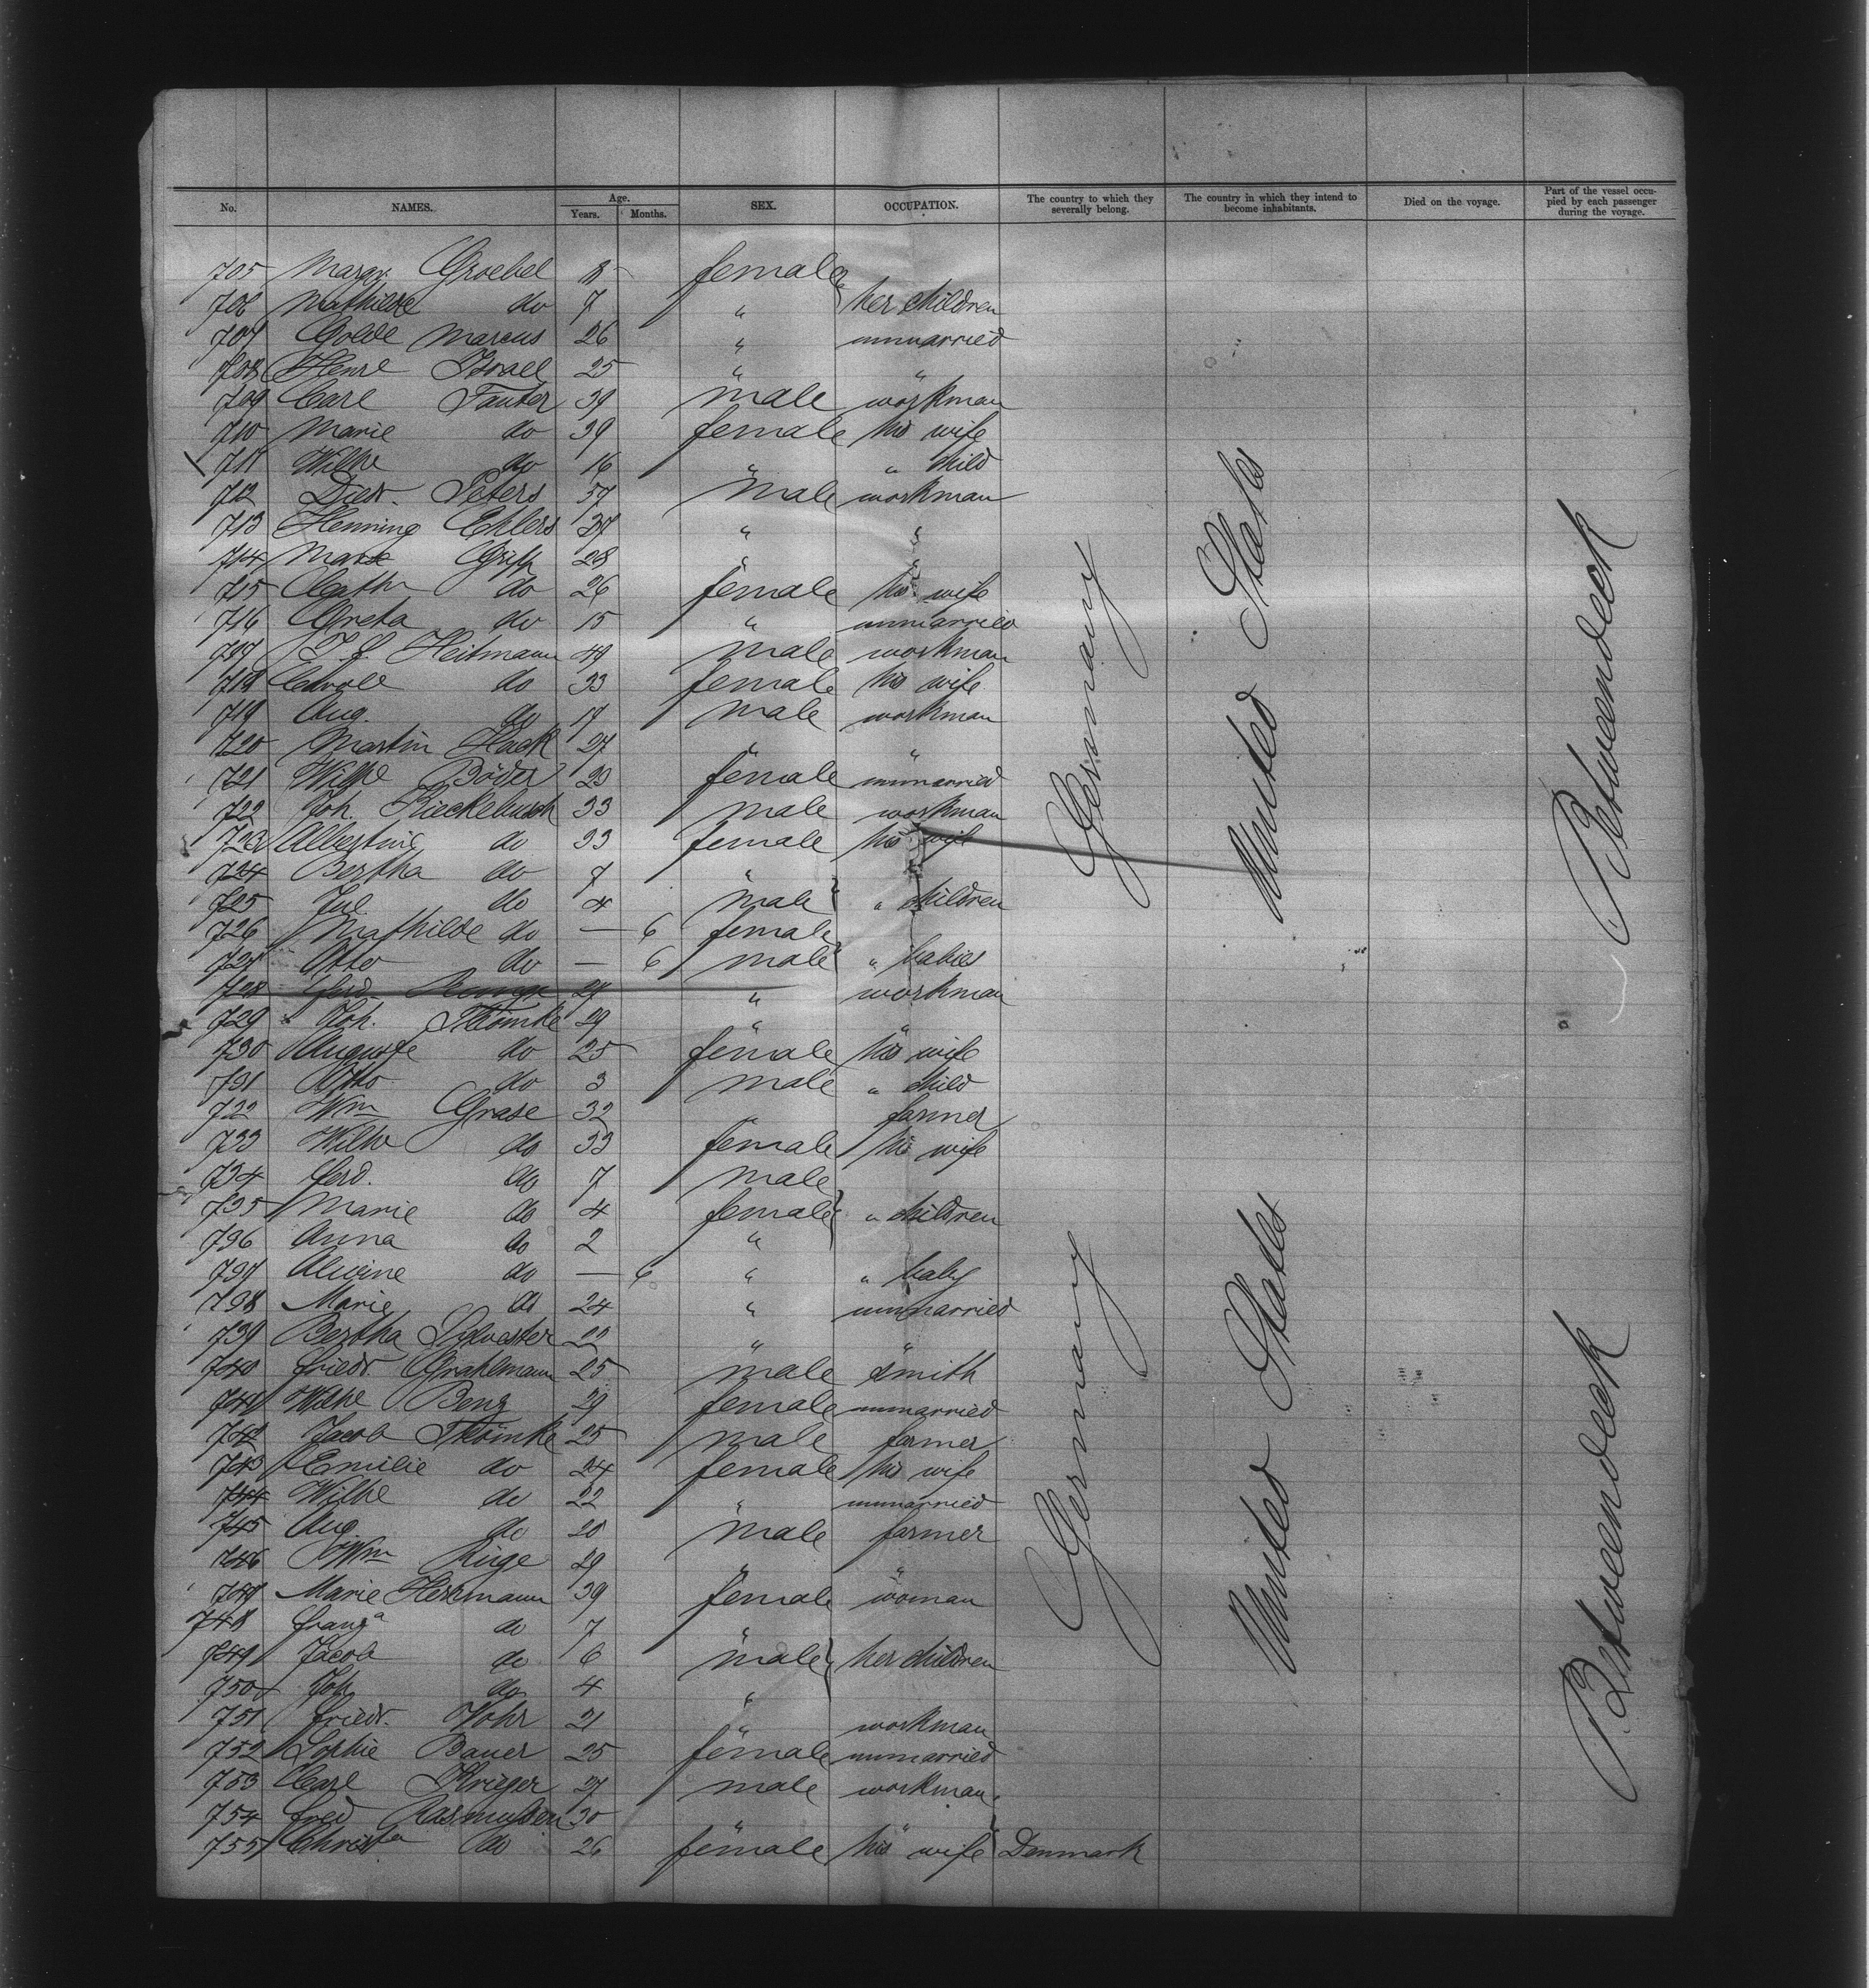 No. NAMES. Age. Years. Months. SEX. OCCUPATION. The country to which they severally belong. The country in which they intend to become inhabitants. Died on the voyage. Part of the vessel occupied by each passenger during the voyage.
705 Margr. Groebel 8 female
706 Mathilde do 7 " her children
707 Golde Marcus 26 " unmarried
708 Henre Israel 25 " "
709 Carl Fauter 39 male workman
710 Marie do 39 female his wife
711 Wilhe do 16 " " child
712 Diedr. Peters 37 male workman
713 Henning Ehlers 37 " "
714 28 " "
715 Cathr do 26 female his wife
716 Greta do 15 " unmarried
717 Heitmann 49 male workman
718 Carole do 33 female his wife
719 Aug. do 17 male workman
720 Martin Hack 27 " "
721 Wilhe Böder 23 female unmarried
722 Joh. Rieckebusch 33 male workman
723 Albertine do 33 female his wife
724 Bertha do 7 "
725 Jul. do 4 male " children
726 Mathilde do — 6 female
727 Otto do — 6 male " babies
728 Ferd. 27 " workman
729 Joh. Thömke 29 " "
730 Auguste do 25 female his wife
731 Otto do 3 male " child
732 Wm Grase 32 " farmer
733 Wilhe do 33 female his wife
734 Ferd. do 7 male
735 Marie do 4 female " children
736 Anna do 2 "
737 Alwine do — 6 " " baby
738 Marie do 24 " unmarried
739 Bertha Sylvester 22 " "
740 Friedr. Grahlmann 25 male smith
741 Wilhe Benz 29 female unmarried
742 Jacob Thömke 25 male farmer
743 Emilie do 24 female his wife
744 Wilhe do 22 " unmarried
745 Aug. do 20 male farmer
746 Wm Ringe 29 " "
747 Marie Herkmann 39 female woman
748 Franza do 7 "
749 Jacob do 6 male her children
750 Joh. do 4 "
751 Friedr. Vohr 21 " workman
752 Sophie Bauer 25 female unmarried
753 Carl Krieger 27 male workman
754 Fred Rasmussen 30 " "
755 Christa do 26 female his wife Denmark
Germany
United States
Betweendeck
Germany
United States
Betweendeck